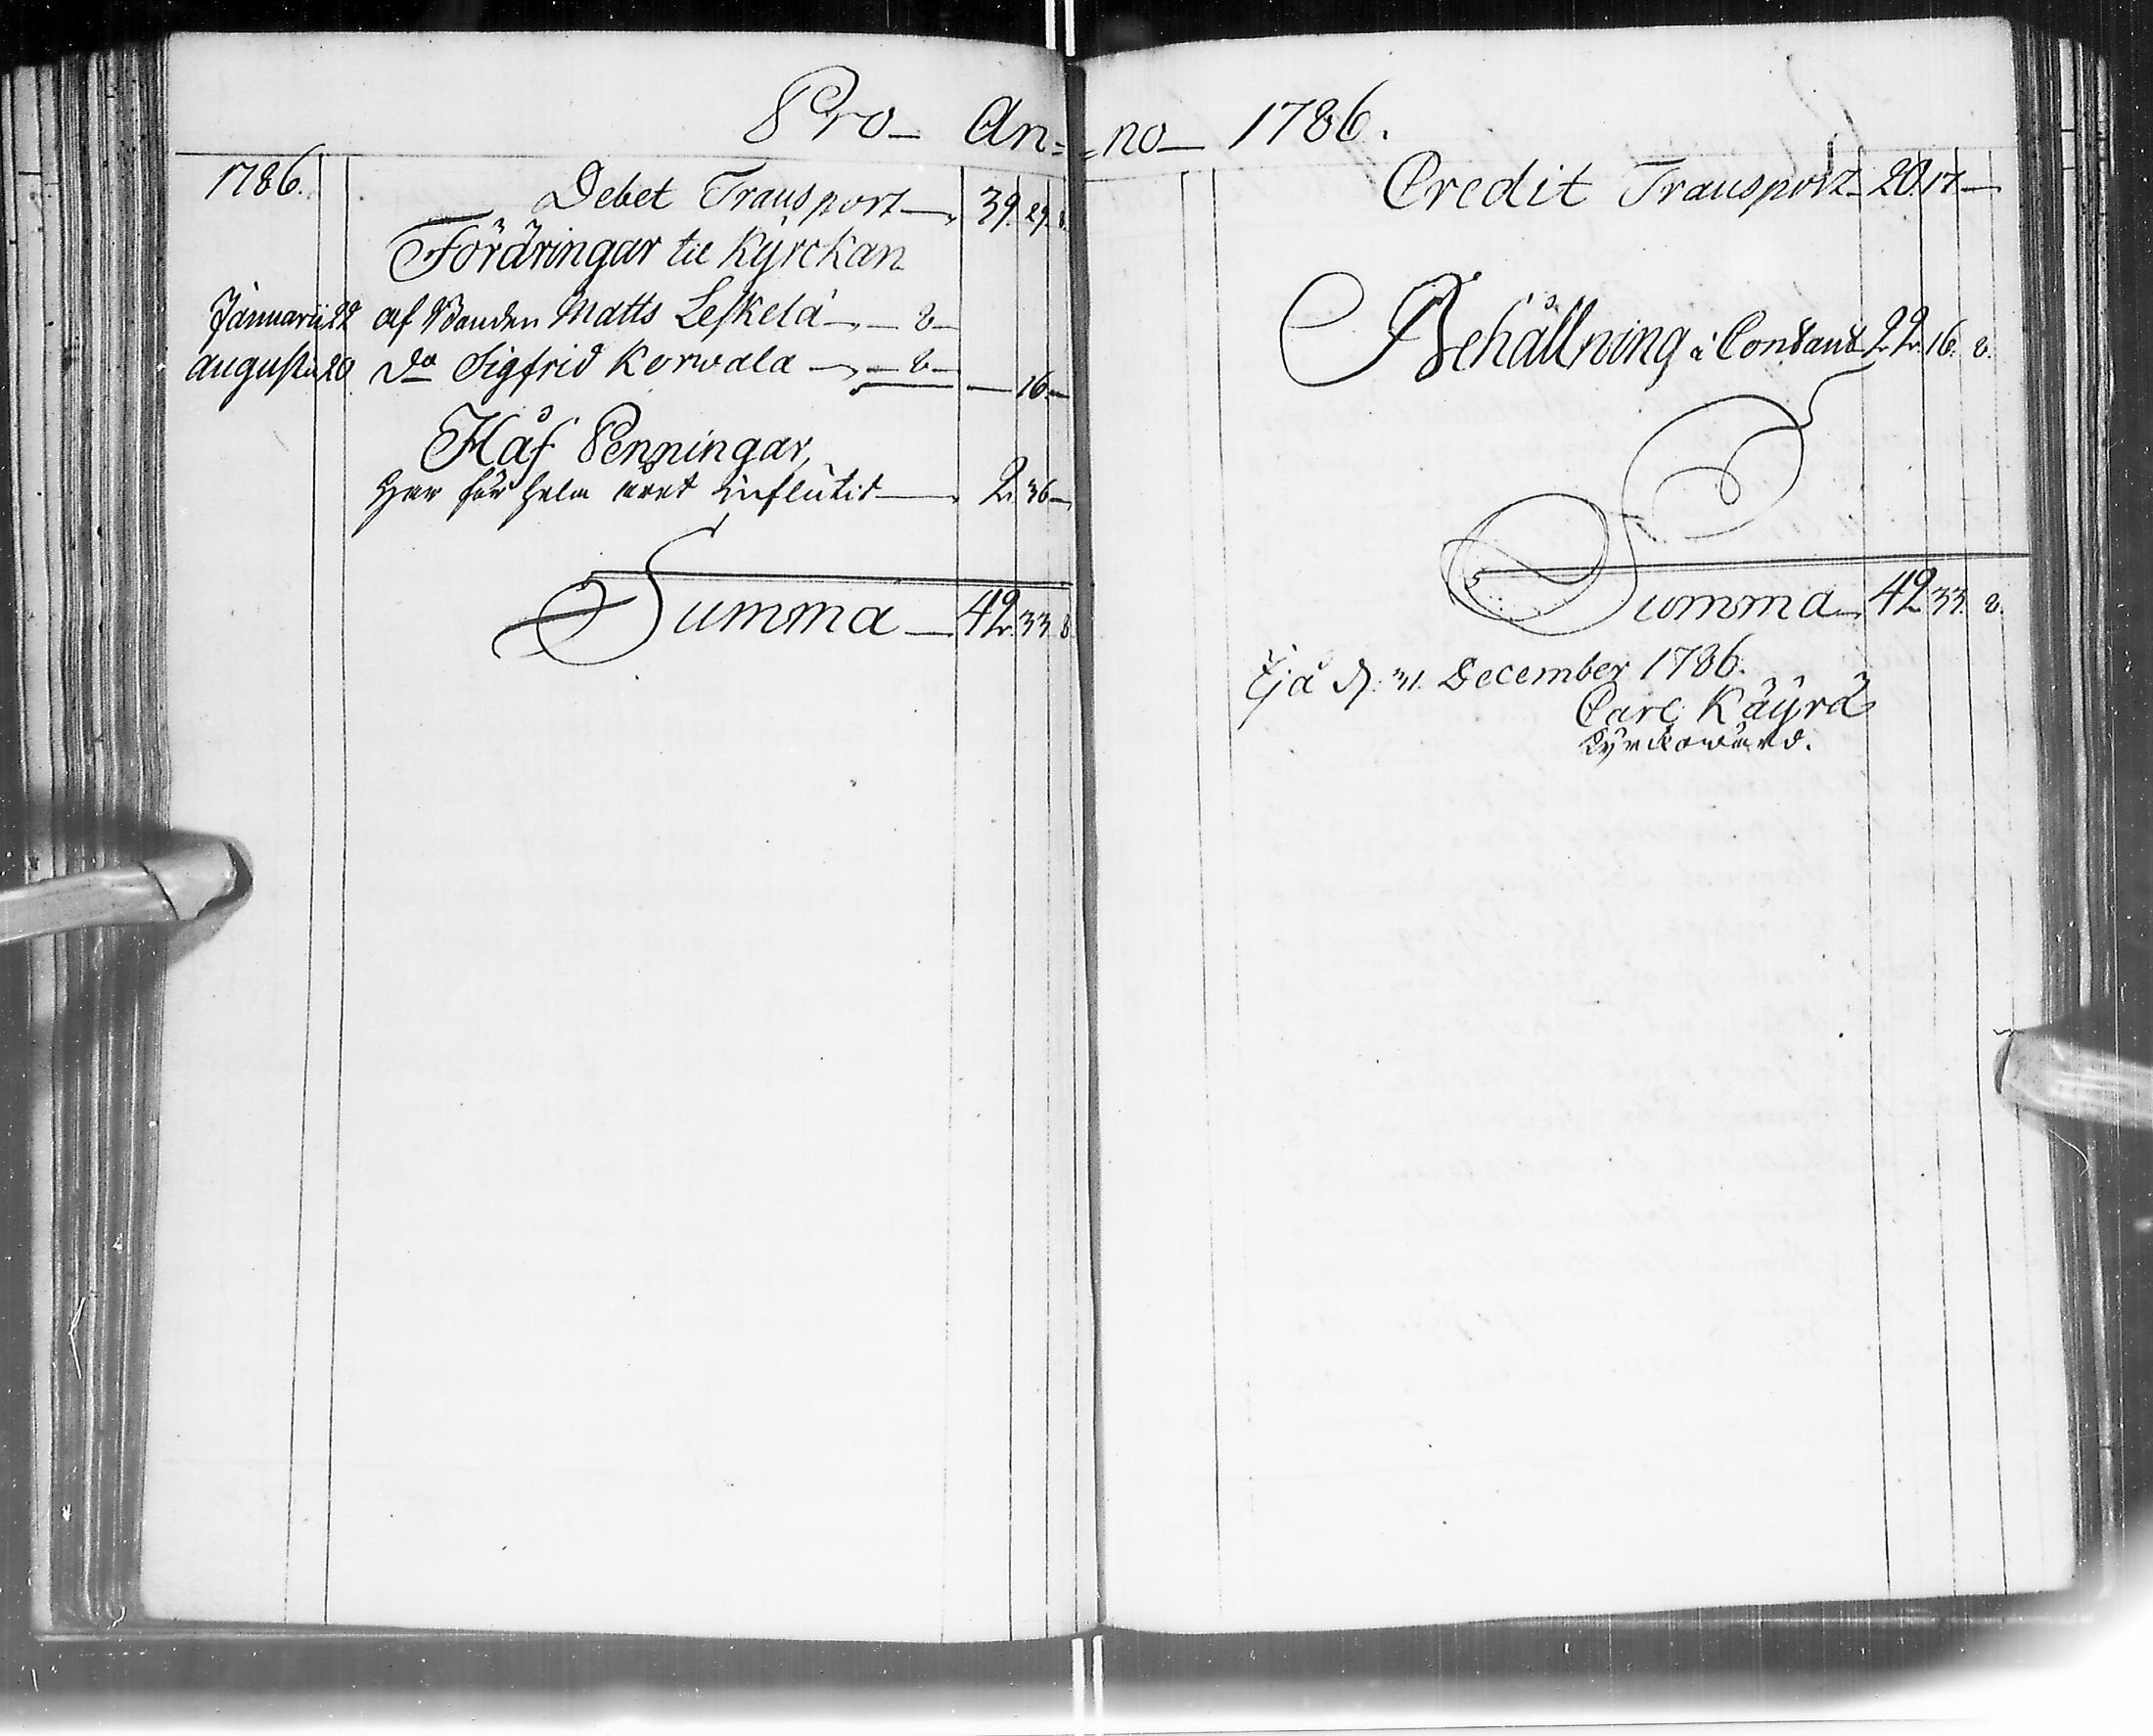 Pro— An=
1786.
Debet Transport— 39. 29. 8.
Föräringar til Kyrckan
Januarii 22 af Bonden Matts Leskelä — 8 —
Augusti 20 Do Sigfrid Korwala — 8 — — 16 —
Håf Penningar,
Har för hela året influtit — 2. 36 —
Summa — 42. 33. 8.
=no— 1786.
Credit Transport— 20. 17 —
Behållning i Contant 22. 16. 8.
Summa — 42. 33. 8.
Ijå d. 31. December 1786.
Carl Käyrä
Kyrckowärd.